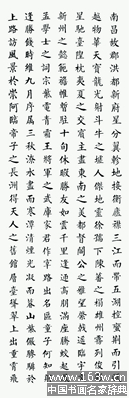 南昌故郡洪都新府星分翼軫地接衡廬襟三江而帶五湖控蠻荊而引甌
越物華天寶龍光射斗牛之墟人傑地靈徐孺下陳蕃之榻雄州霧列俊彩
星馳臺隍枕夷夏之交賓主盡東南之美都督閻公之雅望棨戟遙臨宇文
新州之懿範襜帷暫駐十旬休暇勝友如雲千里逢迎高朋滿座騰蛟起鳳
孟學士之詞宗紫電青霜王將軍之武庫家君作宰路出名區童子何知躬
逢勝餞時維九月序屬三秋潦水盡而寒潭清煙光凝而暮山紫儼驂騑於
上路訪風景於崇阿臨帝子之長洲得天人之舊館層臺聳翠上出重霄飛
www.163w.cn
中国书画名家辞典